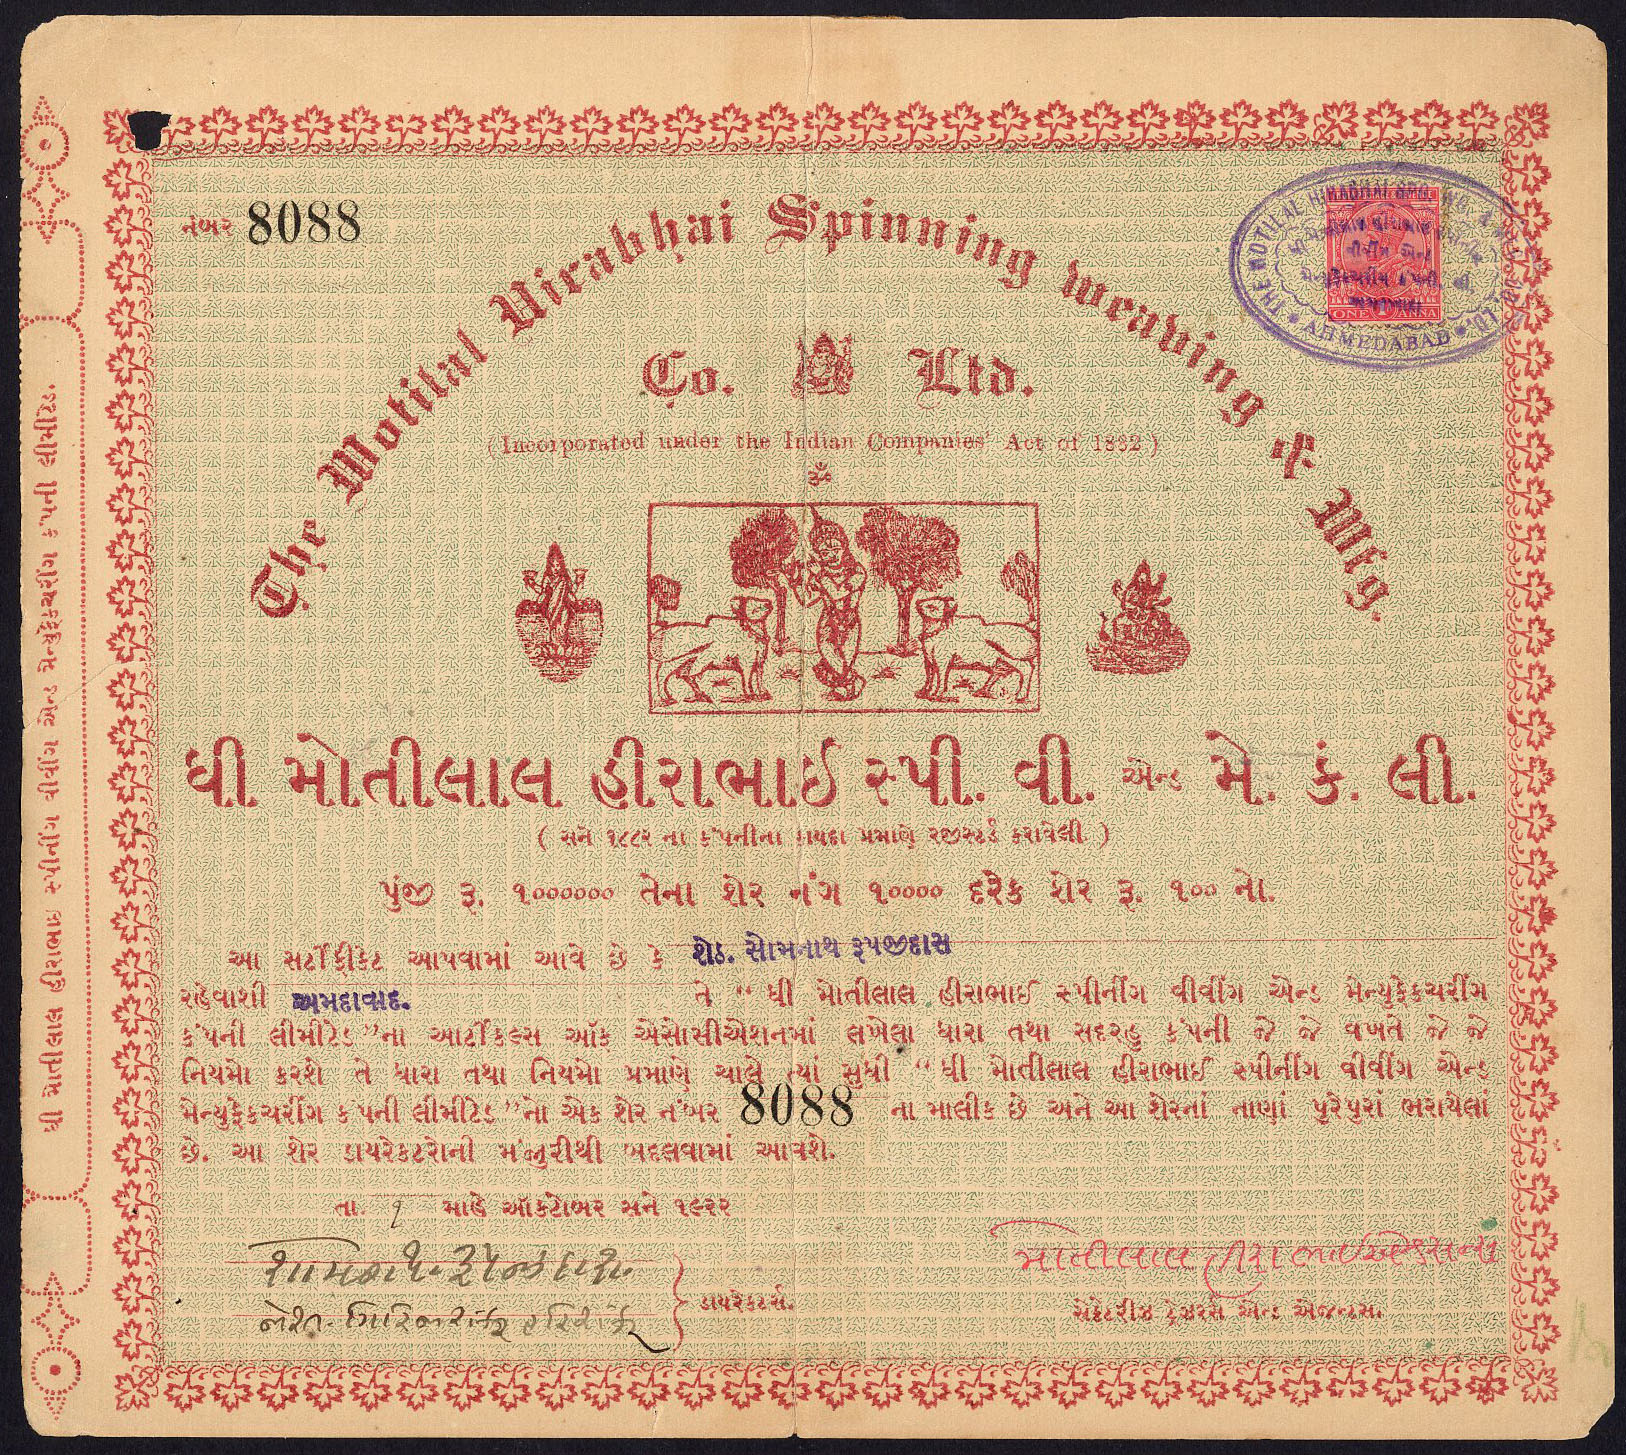 નંબર 8088
The Motilal Hirabhai Spinning Weaving & Mfg.
Co. Ltd.
(Incorporated under the Indian Companies' Act of 1882)
ૐ
THE MOTILAL HIRABHAI
AHMEDABAD
ONE 1 ANNA
ધી મોતીલાલ હીરાભાઈ સ્પી. વી. એન્ડ મે. કં. લી.
( સને ૧૮૮૨ ના કંપનીના કાયદા પ્રમાણે રજીસ્ટર્ડ કરાવેલી )
પુંજી રૂ. ૧૦૦૦૦૦૦ તેના શેર નંગ ૧૦૦૦૦ દરેક શેર રૂ. ૧૦૦ નો.
આ સર્ટીફીકેટ આપવામાં આવે છે કે શેઠ. સોમનાથ રૂપજીદાસ
રહેવાશી અમદાવાદ. તે "ધી મોતીલાલ હીરાભાઈ સ્પીનીંગ વીવીંગ એન્ડ મેન્યુફેકચરીંગ
કંપની લીમીટેડ"ના આર્ટીકલ્સ ઑફ એસોસીએશનમાં લખેલા ધારા તથા સદરહુ કંપની જે જે વખતે જે જે
નિયમો કરશે તે ધારા તથા નિયમો પ્રમાણે ચાલે ત્યાં સુધી "ધી મોતીલાલ હીરાભાઈ સ્પીનીંગ વીવીંગ એન્ડ
મેન્યુફેકચરીંગ કંપની લીમીટેડ"નો એક શેર નંબર 8088 ના માલીક છે અને આ શેરનાં નાણાં પુરેપુરાં ભરાયેલાં
છે. આ શેર ડાયરેકટરોની મંજુરીથી બદલવામાં આવશે.
તા. ૧ માહે ઑકટોબર સને ૧૯૨૨
ડાયરેકટરો.
મોતીલાલ હીરાભાઈ
સેક્રેટરીઝ ટ્રેઝરર્સ એન્ડ એજન્ટસ.
ધી મોતીલાલ હીરાભાઇ સ્પીનીંગ વીવીંગ એન્ડ મેન્યુફેકચરીંગ કંપની લીમીટેડ.